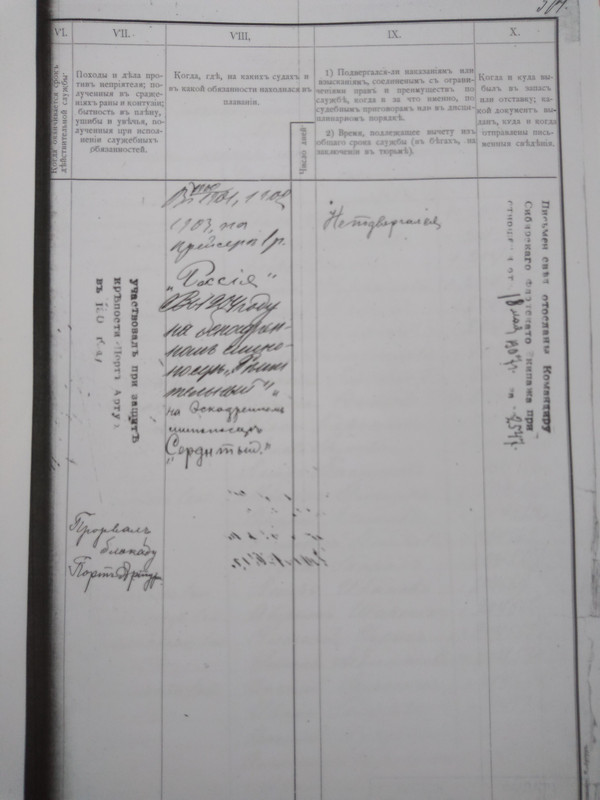 VI.
VII.
VIII.
IX.
X.
Когда оканчивается срокъ
дѣйствительной службы.
Походы и дѣла про-
тивъ непріятеля; по-
лученныя въ сраже-
ніяхъ раны и контузіи;
бытность въ плѣну,
ушибы и увѣчья, по-
лученныя при испол-
неніи служебныхъ
обязанностей.
Когда, гдѣ, на какихъ судахъ и
въ какой обязанности находился въ
плаваніи.
Число дней
1) Подвергался-ли наказаніямъ или
взысканіямъ, соединеннымъ съ ограни-
ченіями правъ и преимуществъ по
службѣ, когда и за что именно, по
судебнымъ приговорамъ или въ дисци-
плинарномъ порядкѣ.
2) Время, подлежащее вычету изъ
общаго срока службы (въ бѣгахъ, на
заключеніи въ тюрьмѣ).
Когда и куда вы-
былъ въ запасъ
или отставку; ка-
кой документъ вы-
данъ, куда и когда
отправлены пись-
менныя свѣдѣнія.
участвовалъ при защитѣ
крѣпости Портъ Арту
въ
1903, на
крейсера Iр.
„Россія"
Въ 1904 году
на эскадрен-
номъ мино-
носцѣ „Рѣши
тельный"
на Эскадренномъ
миноносцѣ
„Сердитый."
Прорвалъ
блокаду
Портъ Артура
Неподвергался
Письмен свѣд отосланы Командиру
Сибирскаго Флотскаго Экипажа при